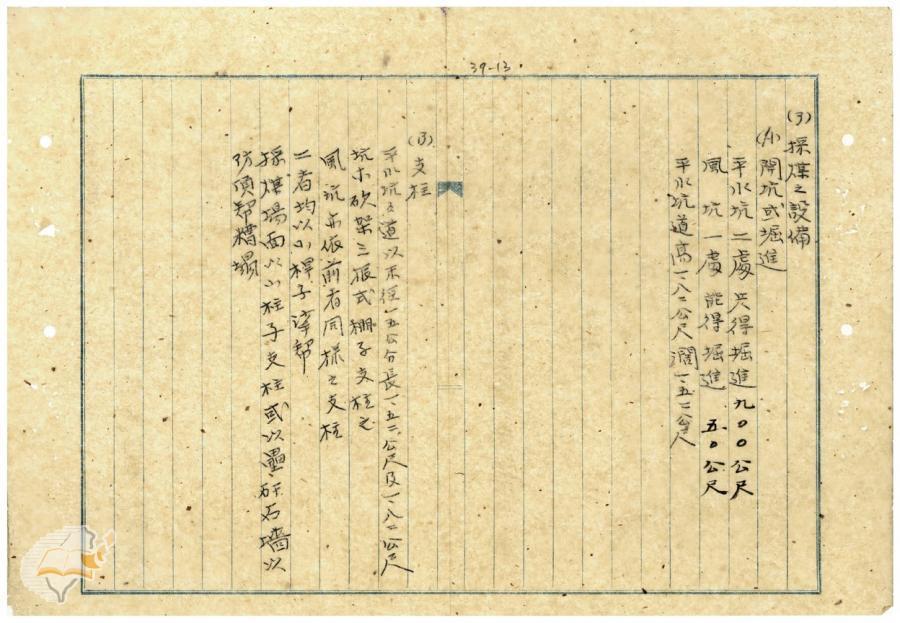 39-13
(3)採煤之設備
(A)開坑或堀進
平水坑二處 共得堀進九〇〇公尺
風坑一處 能得堀進 五〇公尺
平水坑道高一、八二公尺濶一、五二公尺
(B)支柱
平水坑之道以木徑一五公分長一、五二公尺及一、八二公尺
坑木砍架三根式棚子支柱之
風坑亦依前者同樣之支柱
二者均以小桿子 帮
採煤場面以小柱子支柱或以壘矸石墻以
防頂帮糟塌